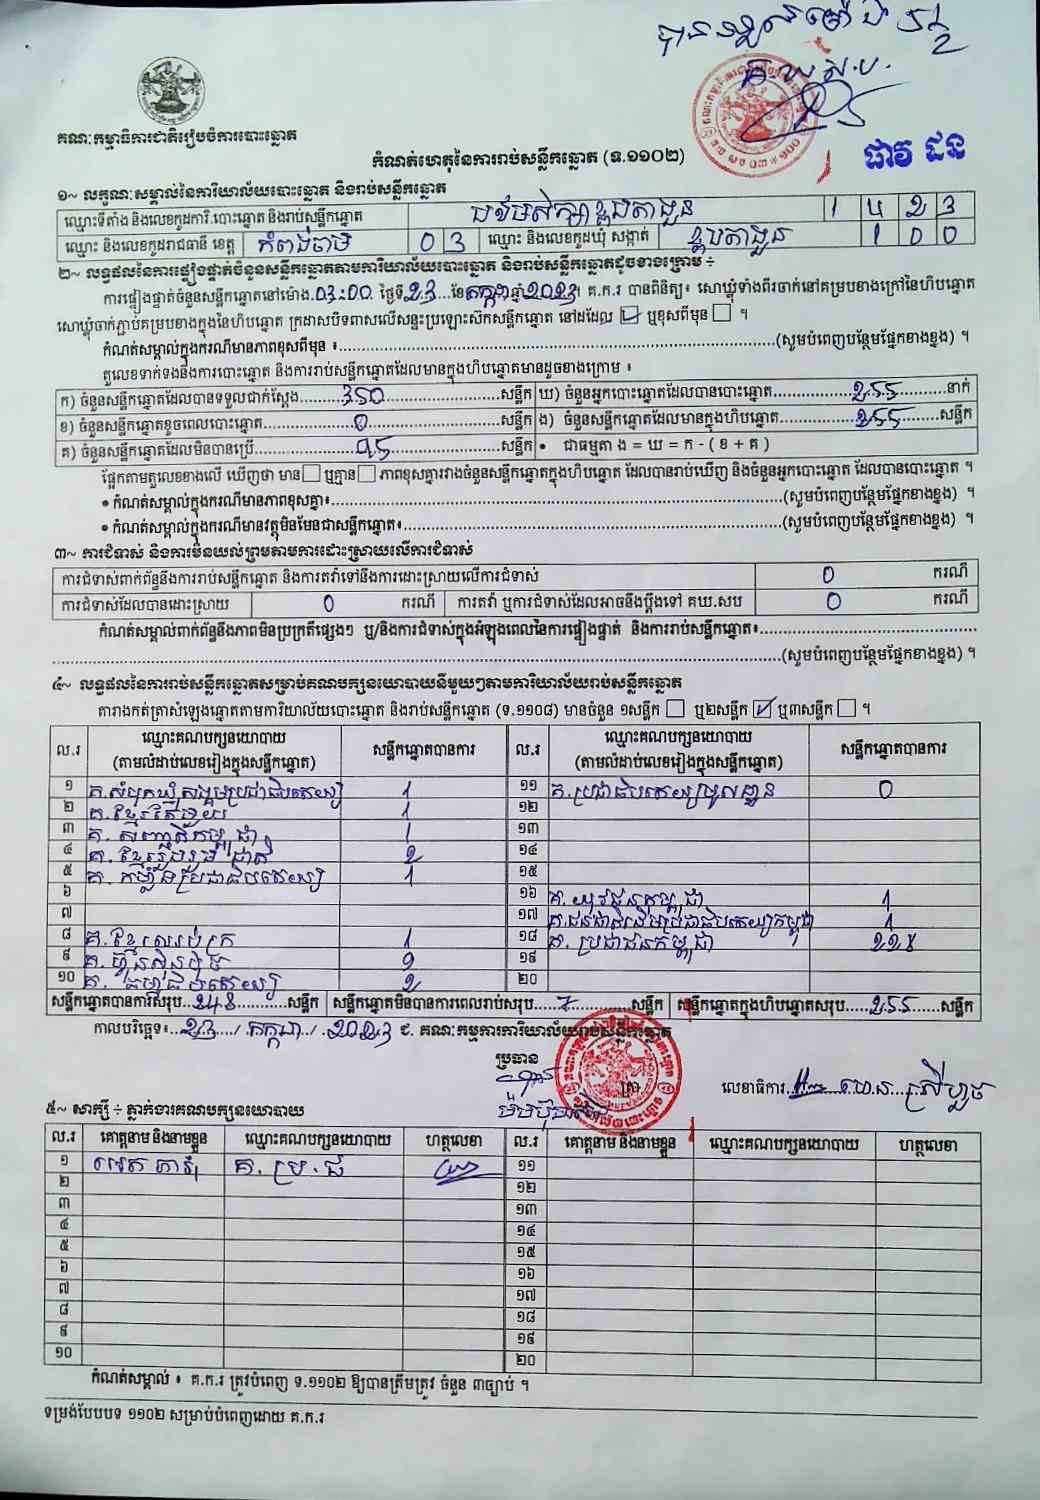 គណៈកម្មាធិការជាតិរៀបចំការបោះឆ្នោត
កំណត់ហេតុនៃការរាប់សន្លឹកឆ្នោត (ទ.១១០២)
ផាវ ជន
១~ លក្ខណៈសម្គាល់នៃការិយាល័យបោះឆ្នោត និងរាប់សន្លឹកឆ្នោត
ឈ្មោះទីតាំង និងលេខកូដការិ.បោះឆ្នោត និងរាប់សន្លឹកឆ្នោត
ឈ្មោះ និងលេខកូដរាជធានី ខេត្ត កំពង់ចាម 0 3 ឈ្មោះ និងលេខកូដឃុំ សង្កាត់ 1 0 0
២~ លទ្ធផលនៃការផ្ទៀងផ្ទាត់ចំនួនសន្លឹកឆ្នោតតាមការិយាល័យបោះឆ្នោត និងរាប់សន្លឹកឆ្នោតដូចខាងក្រោម ÷
ការផ្ទៀងផ្ទាត់ចំនួនសន្លឹកឆ្នោតនៅម៉ោង 03:00 ថ្ងៃទី 23 ខែ កក្កដា ឆ្នាំ 2023 គ.ក.រ បានពិនិត្យ៖ សោឃ្លុំទាំងពីរចាក់នៅគម្របខាងក្រៅនៃហិបឆ្នោត
សោឃ្លុំចាក់ភ្ជាប់គម្របខាងក្នុងនៃហិបឆ្នោត ក្រដាសបិទពាសលើសន្ទះប្រឡោះស៊កសន្លឹកឆ្នោត នៅដដែល ឬខុសពីមុន ។
កំណត់សម្គាល់ក្នុងករណីមានភាពខុសពីមុន ៖ (សូមបំពេញបន្ថែមផ្នែកខាងខ្នង) ។
តួលេខទាក់ទងនឹងការបោះឆ្នោត និងការរាប់សន្លឹកឆ្នោតដែលមានក្នុងហិបឆ្នោតមានដូចខាងក្រោម ៖
ក) ចំនួនសន្លឹកឆ្នោតដែលបានទទួលជាក់ស្តែង 350 សន្លឹក ឃ) ចំនួនអ្នកបោះឆ្នោតដែលបានបោះឆ្នោត 255 នាក់
ខ) ចំនួនសន្លឹកឆ្នោតខូចពេលបោះឆ្នោត 0 សន្លឹក ង) ចំនួនសន្លឹកឆ្នោតដែលមានក្នុងហិបឆ្នោត 255 សន្លឹក
គ) ចំនួនសន្លឹកឆ្នោតដែលមិនបានប្រើ 95 សន្លឹក • ជាធម្មតា ង = ឃ = ក - ( ខ + គ )
ផ្អែកតាមតួលេខខាងលើ ឃើញថា មាន ឬគ្មាន ភាពខុសគ្នារវាងចំនួនសន្លឹកឆ្នោតក្នុងហិបឆ្នោត ដែលបានរាប់ឃើញ និងចំនួនអ្នកបោះឆ្នោត ដែលបានបោះឆ្នោត ។
• កំណត់សម្គាល់ក្នុងករណីមានភាពខុសគ្នា៖ (សូមបំពេញបន្ថែមផ្នែកខាងខ្នង) ។
• កំណត់សម្គាល់ក្នុងករណីមានវត្ថុមិនមែនជាសន្លឹកឆ្នោត៖ (សូមបំពេញបន្ថែមផ្នែកខាងខ្នង) ។
៣~ ការជំទាស់ និងការមិនយល់ព្រមតាមការដោះស្រាយលើការជំទាស់
ការជំទាស់ពាក់ព័ន្ធនឹងការរាប់សន្លឹកឆ្នោត និងការតវ៉ាទៅនឹងការដោះស្រាយលើការជំទាស់ 0 ករណី
ការជំទាស់ដែលបានដោះស្រាយ 0 ករណី ការតវ៉ា ឬការជំទាស់ដែលអាចនឹងប្តឹងទៅ គឃ.សប 0 ករណី
កំណត់សម្គាល់ពាក់ព័ន្ធនឹងភាពមិនប្រក្រតីផ្សេងៗ ឬ/និងការជំទាស់ក្នុងអំឡុងពេលនៃការផ្ទៀងផ្ទាត់ និងការរាប់សន្លឹកឆ្នោត៖
(សូមបំពេញបន្ថែមផ្នែកខាងខ្នង) ។
៤~ លទ្ធផលនៃការរាប់សន្លឹកឆ្នោតសម្រាប់គណបក្សនយោបាយនីមួយៗតាមការិយាល័យរាប់សន្លឹកឆ្នោត
តារាងកត់ត្រាសំឡេងឆ្នោតតាមការិយាល័យបោះឆ្នោត និងរាប់សន្លឹកឆ្នោត (ទ.១១០៨) មានចំនួន ១សន្លឹក ឬ២សន្លឹក ឬ៣សន្លឹក ។
ល.រ ឈ្មោះគណបក្សនយោបាយ (តាមលំដាប់លេខរៀងក្នុងសន្លឹកឆ្នោត) សន្លឹកឆ្នោតបានការ ល.រ ឈ្មោះគណបក្សនយោបាយ (តាមលំដាប់លេខរៀងក្នុងសន្លឹកឆ្នោត) សន្លឹកឆ្នោតបានការ
១ គ.សំបុកឃ្មុំសង្គមប្រជាធិបតេយ្យ 1 ១១ គ.ប្រជាធិបតេយ្យមូលដ្ឋាន 0
២ គ.ខ្មែរតែមួយ 1 ១២
៣ គ.សញ្ជាតិកម្ពុជា 1 ១៣
៤ គ.ខ្មែររួបរួមជាតិ 2 ១៤
៥ គ.កម្លាំងប្រជាធិបតេយ្យ 1 ១៥
៦ ១៦ គ.យុវជនកម្ពុជា 1
៧ ១៧ គ.ជនជាតិដើមប្រជាធិបតេយ្យកម្ពុជា 1
៨ គ.ខ្មែរឈប់ក្រ 1 ១៨ គ.ប្រជាជនកម្ពុជា
៩ គ.ហ៊្វុនស៊ិនប៉ិច ១៩
១០ គ.ធម្មាធិបតេយ្យ 2 ២០
សន្លឹកឆ្នោតបានការសរុប 248 សន្លឹក សន្លឹកឆ្នោតមិនបានការពេលរាប់សរុប 7 សន្លឹក សន្លឹកឆ្នោតក្នុងហិបឆ្នោតសរុប 255 សន្លឹក
កាលបរិច្ឆេទ៖ 23 / កក្កដា / 2023 ជ. គណៈកម្មការការិយាល័យរាប់សន្លឹកឆ្នោត
ប្រធាន
លេខាធិការ
៥~ សាក្សី ÷ ភ្នាក់ងារគណបក្សនយោបាយ
ល.រ គោត្តនាម និងនាមខ្លួន ឈ្មោះគណបក្សនយោបាយ ហត្ថលេខា ល.រ គោត្តនាម និងនាមខ្លួន ឈ្មោះគណបក្សនយោបាយ ហត្ថលេខា
១ គ.ប្រ.ជ ១១
២ ១២
៣ ១៣
៤ ១៤
៥ ១៥
៦ ១៦
៧ ១៧
៨ ១៨
៩ ១៩
១០ ២០
កំណត់សម្គាល់ ៖ គ.ក.រ ត្រូវបំពេញ ទ.១១០២ ឱ្យបានត្រឹមត្រូវ ចំនួន ៣ច្បាប់ ។
ទម្រង់បែបបទ ១១០២ សម្រាប់បំពេញដោយ គ.ក.រ